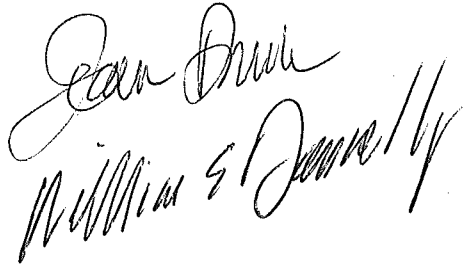 Jean
William E Donnelly